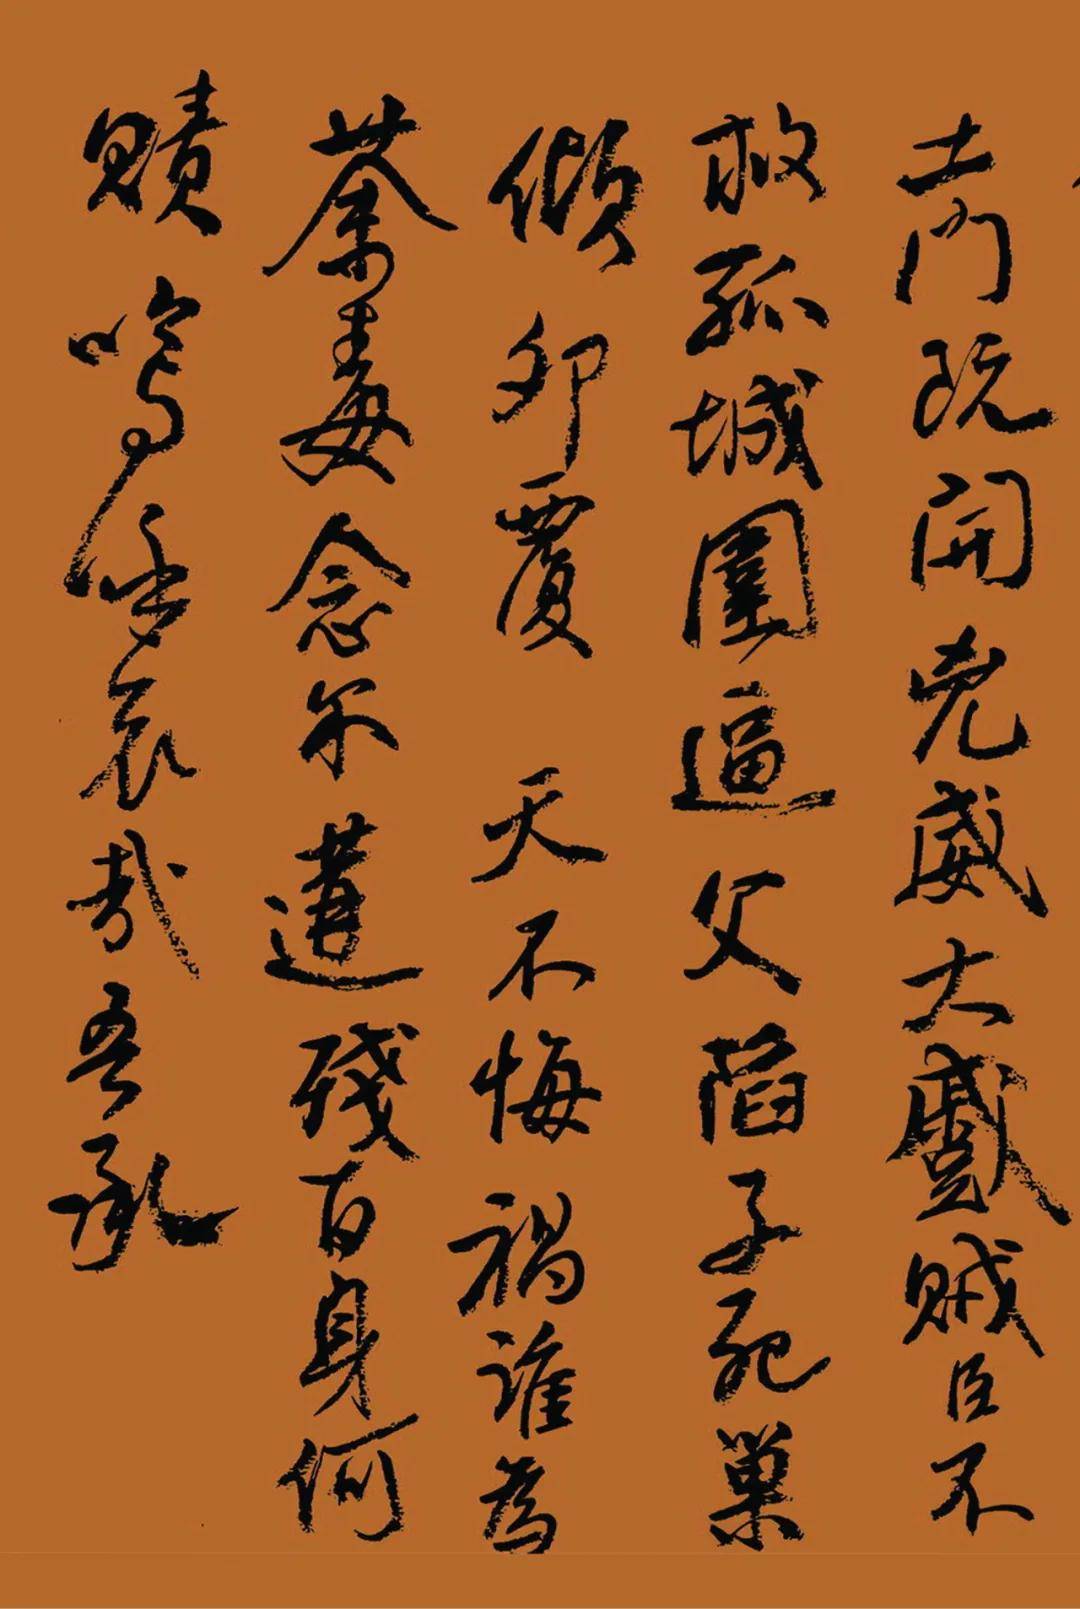 土門既開兇威大蹙賊臣不
救孤城圍逼父陷子死巢
傾卵覆天不悔禍誰為
荼毒念尔遘殘百身何
贖嗚呼哀哉吾承